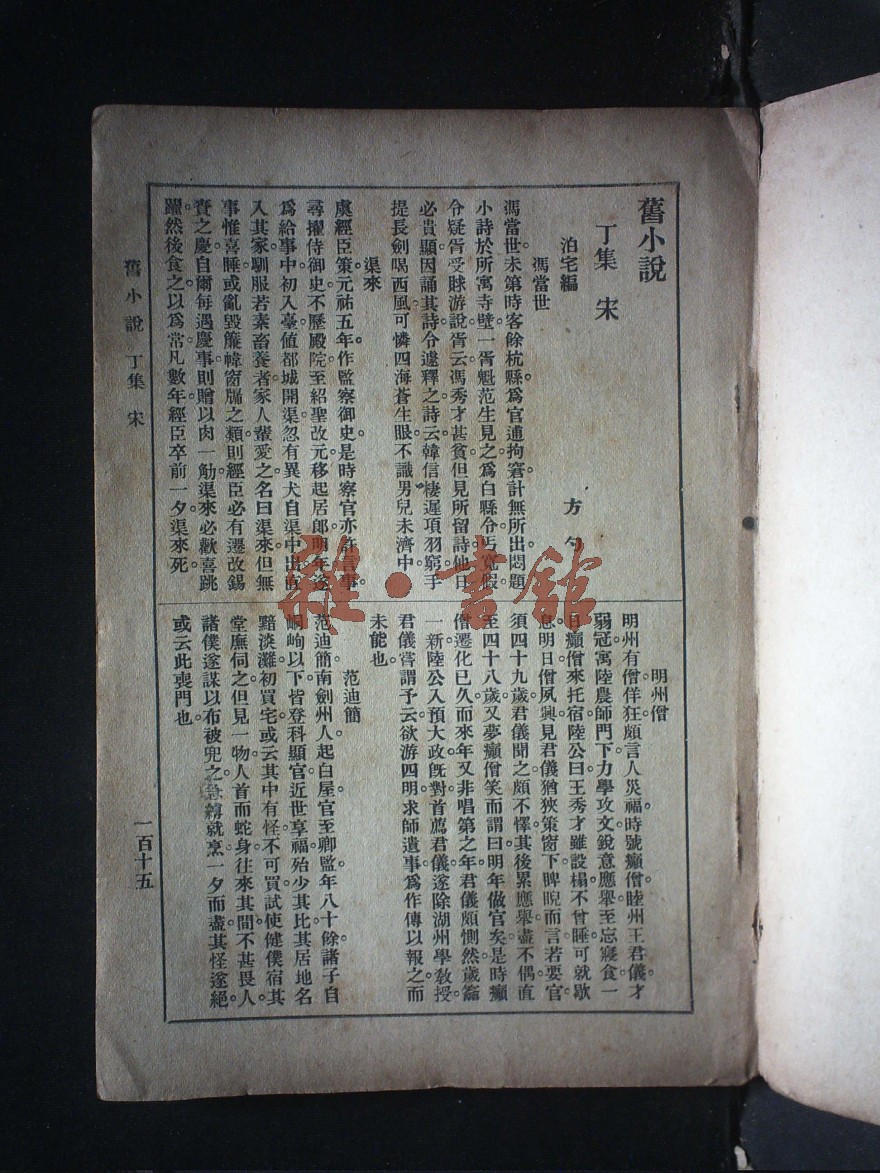 舊小說
丁集 宋
泊宅編 方勺
馮當世
馮當世未第時客餘杭縣爲官逋拘窘計無所出悶題
小詩於所寓寺壁一胥魁范生見之爲白縣令丐寬假
令疑胥受賕游說胥云馮秀才甚貧但見所留詩他日
必貴顯因誦其詩令遽釋之詩云韓信棲遲項羽窮手
提長劍喝西風可憐四海蒼生眼不識男兒未濟中
渠來
虞經臣策元祐五年作監察御史是時察官亦許言事
尋擢侍御史不歷殿院至紹聖改元移起居郎明年遂
爲給事中初入臺値都城開渠忽有異犬自渠中出直
入其家馴服若素畜養者家人輩愛之名曰渠來但無
事惟喜睡或亂毀簾幃窗牖之類則經臣必有遷改錫
賚之慶自爾每遇慶事則贈以肉一觔渠來必歡喜跳
躍然後食之以爲常凡數年經臣卒前一夕渠來死
明州僧
明州有僧佯狂頗言人災福時號癲僧睦州王君儀才
弱冠寓陸農師門下力學攻文銳意應舉至忘寢食一
日癲僧來托宿陸公曰王秀才雖設榻不曾睡可就歇
息明日僧夙興見君儀猶狹策窗下睥睨而言若要官
須四十九歲君儀聞之頗不懌其後累應舉盡不偶直
至四十八歲又夢癲僧笑而謂曰明年做官矣是時癲
僧遷化已久而來年又非唱第之年君儀頗惻然歲籥
一新陸公入預大政旣對首薦君儀遂除湖州學敎授
君儀嘗謂予云欲游四明求師遺事爲作傳以報之而
未能也
范迪簡
范迪簡南劍州人起白屋官至卿監年八十餘諸子自
峒岣以下皆登科顯官近世享福殆少其比其居地名
黯淡灘初買宅或云其中有怪不可買試使健僕宿其
堂廡伺之但見一物人首而蛇身往來其間不甚畏人
諸僕遂謀以布被兜之急縛就烹一夕而盡其怪遂絕
或云此喪門也
舊小說 丁集 宋
一百十五
雜·書館